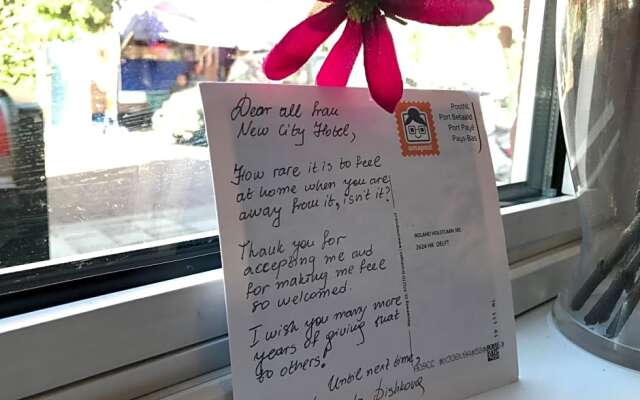 Dear all from
New City Hotel,
How rare it is to feel
at home when you are
away from it, isn't it?
Thank you for
accepting me and
for making me feel
so welcomed.
I wish you many more
years of giving that
to others!
Until next time,
Dishkova
PostNL
Port Betaald
Port Payé
Pays-Bas
ROLAND HOLSTLAAN 961
2624 HK DELFT